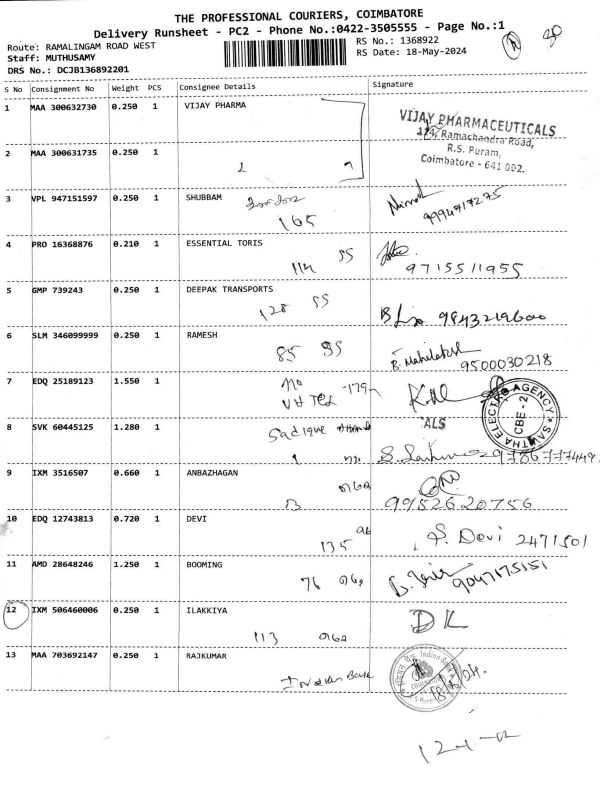 THE PROFESSIONAL COURIERS, COIMBATORE
Delivery Runsheet - PC2 - Phone No.:0422-3505555 - Page No.:1
Route: RAMALINGAM ROAD WEST
RS No.: 1368922
Staff: MUTHUSAMY
RS Date: 18-May-2024
DRS No.: DCJB136892201
S No Consignment No Weight PCS Consignee Details Signature
1 MAA 300632730 0.250 1 VIJAY PHARMA
VIJAY PHARMACEUTICALS
174, Ramachandra Road,
R.S. Puram,
Coimbatore - 641 002.
2 MAA 300631735 0.250 1
3 VPL 947151597 0.250 1 SHUBBAM
165
9994717275
4 PRO 16368876 0.210 1 ESSENTIAL TORIS
114 SS
9715511955
5 GMP 739243 0.250 1 DEEPAK TRANSPORTS
128 SS
9843219600
6 SLM 346099999 0.250 1 RAMESH
85 SS
B. Mahalakshmi
9500030218
7 EDQ 25189123 1.550 1
SANTHA ELECTRO AGENCY
CBE-2
8 SVK 60445125 1.280 1
Sadique
ALS
9786777449
9 IXM 3516507 0.660 1 ANBAZHAGAN
13
9952620756
10 EDQ 12743813 0.720 1 DEVI
135
S. Devi 2471501
11 AMD 28648246 1.250 1 BOOMING
76
9047175151
12 IXM 506460006 0.250 1 ILAKKIYA
113
DK
13 MAA 703692147 0.250 1 RAJKUMAR
Indian Bank
Indian Bank